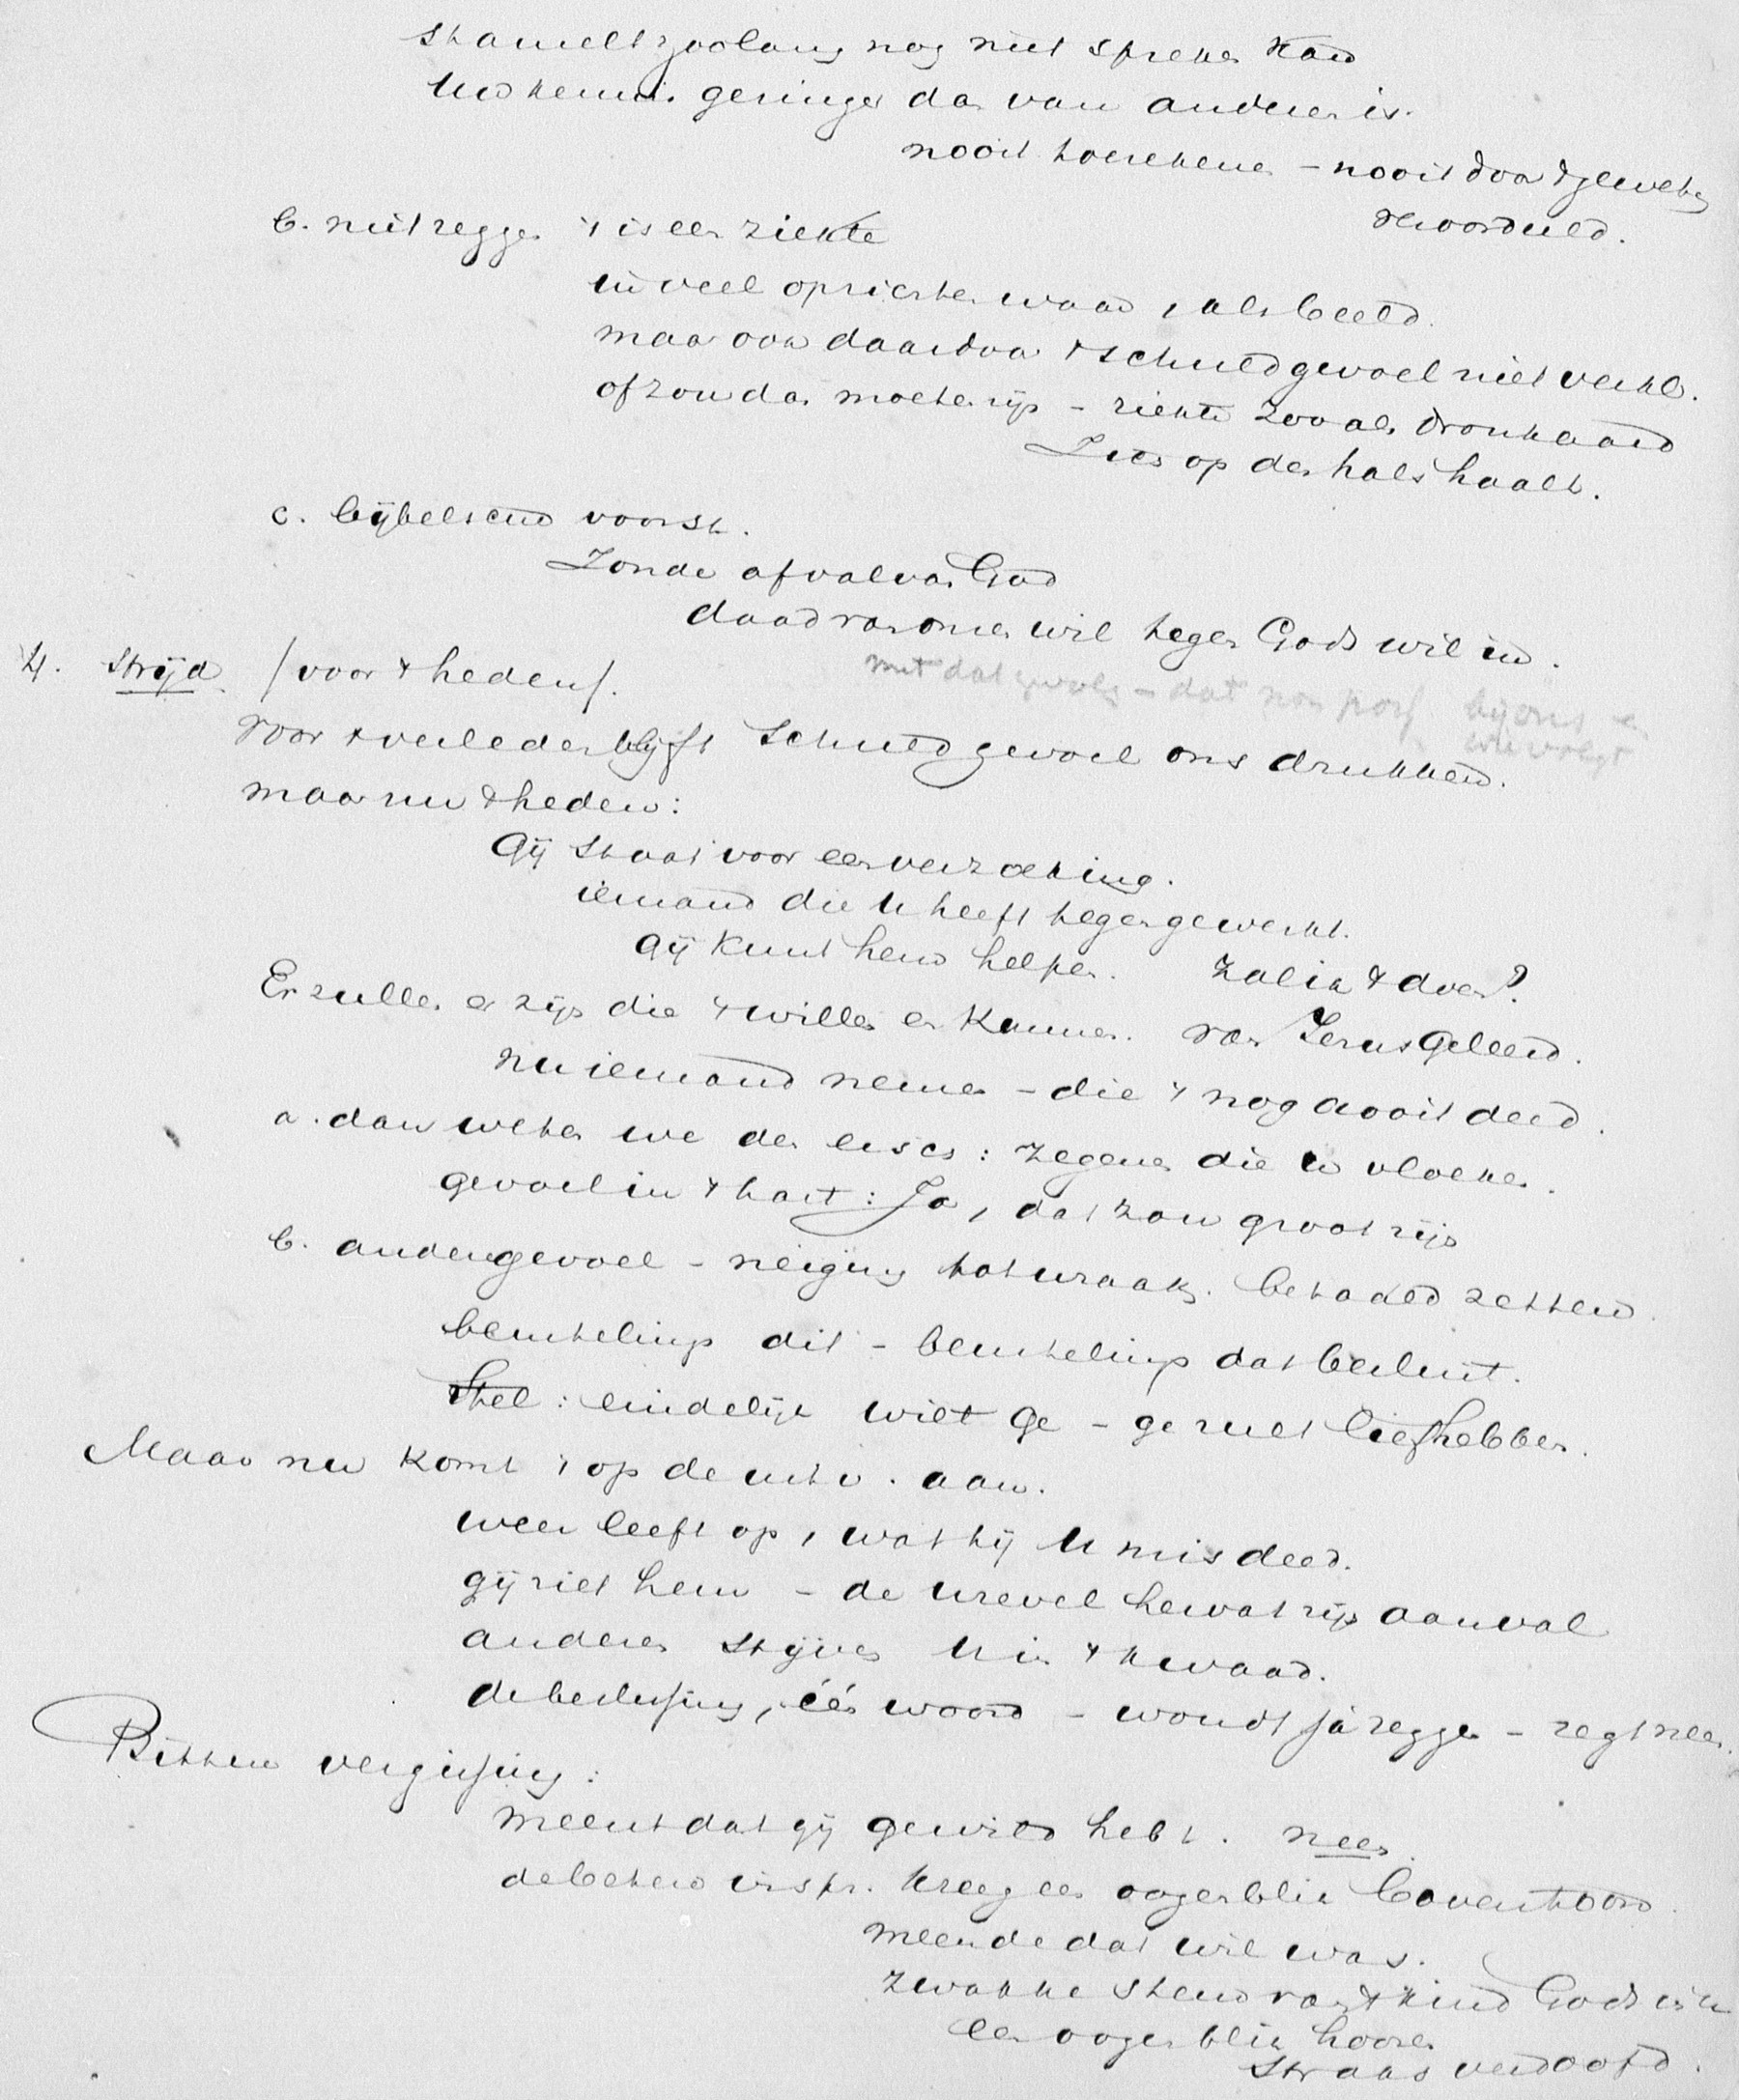 stamelt zoolang nog niet spreken kan
Uw kennis geringer dan van anderen is.
nooit toerekenen – nooit door 't geweten
veroordeeld.
b. niet zeggen 't is een ziekte
in veel opzichten waar, als beeld.
maar ook daardoor 't schuldgevoel niet verkl.
of zou dan moeten zijn – ziekte zooals dronkaard
zich op den hals haalt.
c. bijbelsche voorst.
Zonde afval van God
daad van onzen wil tegen Gods wil in.
met dat gevolg – dat non poss bij ons er
uit volgt
4. Strijd /voor 't heden/.
Voor 't verleden blijft schuldgevoel ons drukken.
maar nu 't heden:
Gij staat voor een verzoeking.
iemand die U heeft tegengewerkt.
Gij kunt hem helpen. Zal ik 't doen?
Er zullen er zijn die 't willen en kunnen. van Jezus geleerd.
nu iemand nemen – die 't nog nooit deed.
a. dan weten we den eisch: zegenen die u vloeken.
gevoel in 't hart: Ja, dat zou groot zijn
b. ander gevoel – neiging tot wraak. betaald zetten.
beurtelings dit – beurtelings dat besluit.
Stel: eindelijk wilt ge – ge zult liefhebben.
Maar nu komt 't op de uitv. aan.
weer leeft op, wat hij U misdeed.
gij ziet hem – de wrevel hervat zijn aanval
anderen stijven U in 't kwaad.
de beslissing, één woord – woudt ja zeggen – zegt neen.
Bittere vergissing:
meent dat gij gewild hebt. neen
de betere inspr. kreeg een oogenblik boventoon.
meende dat wil was.
zwakke stem van 't kind Gods in U
een oogenblik hooren
straks verdoofd.